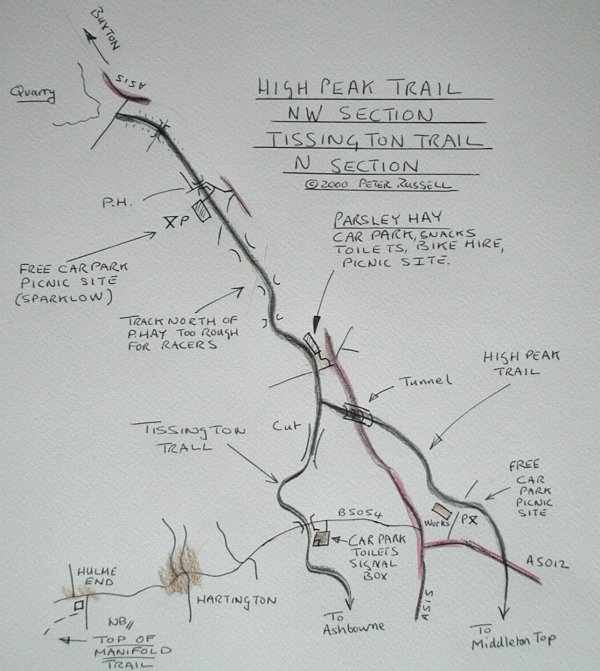 BUXTON
A515
Quarry
HIGH PEAK TRAIL
NW SECTION
TISSINGTON TRAIL
N SECTION
©2000 PETER RUSSELL
P.H.
XP
FREE CAR PARK
PICNIC SITE
(SPARKLOW)
PARSLEY HAY
CAR PARK, SNACKS
TOILETS, BIKE HIRE,
PICNIC SITE.
TRACK NORTH OF
P.HAY TOO ROUGH
FOR RACERS
HIGH PEAK
TRAIL
Tunnel
TISSINGTON
TRALL
Cut
FREE
CAR
PARK
PICNIC
SITE
B5054
Works
PX
CAR PARK
TOILETS
SIGNAL
BOX
A5012
HULME
END
HARTINGTON
NB
TOP OF
MANIFOLD
TRAIL
To
Ashbowne
A515
To
Middleton Top